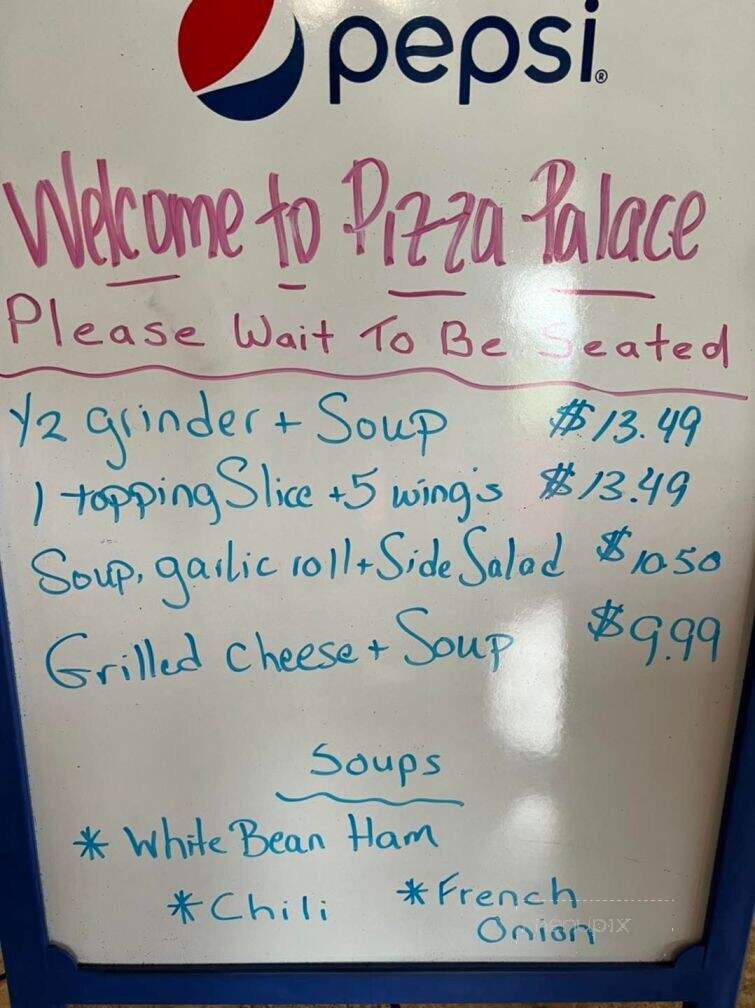 pepsi®
Welcome to Pizza Palace
Please Wait To Be Seated
1/2 grinder + Soup $13.49
1 topping Slice + 5 wing's $13.49
Soup, garlic roll + Side Salad $10.50
Grilled cheese + Soup $9.99
Soups
* White Bean Ham
* Chili * French
Onion